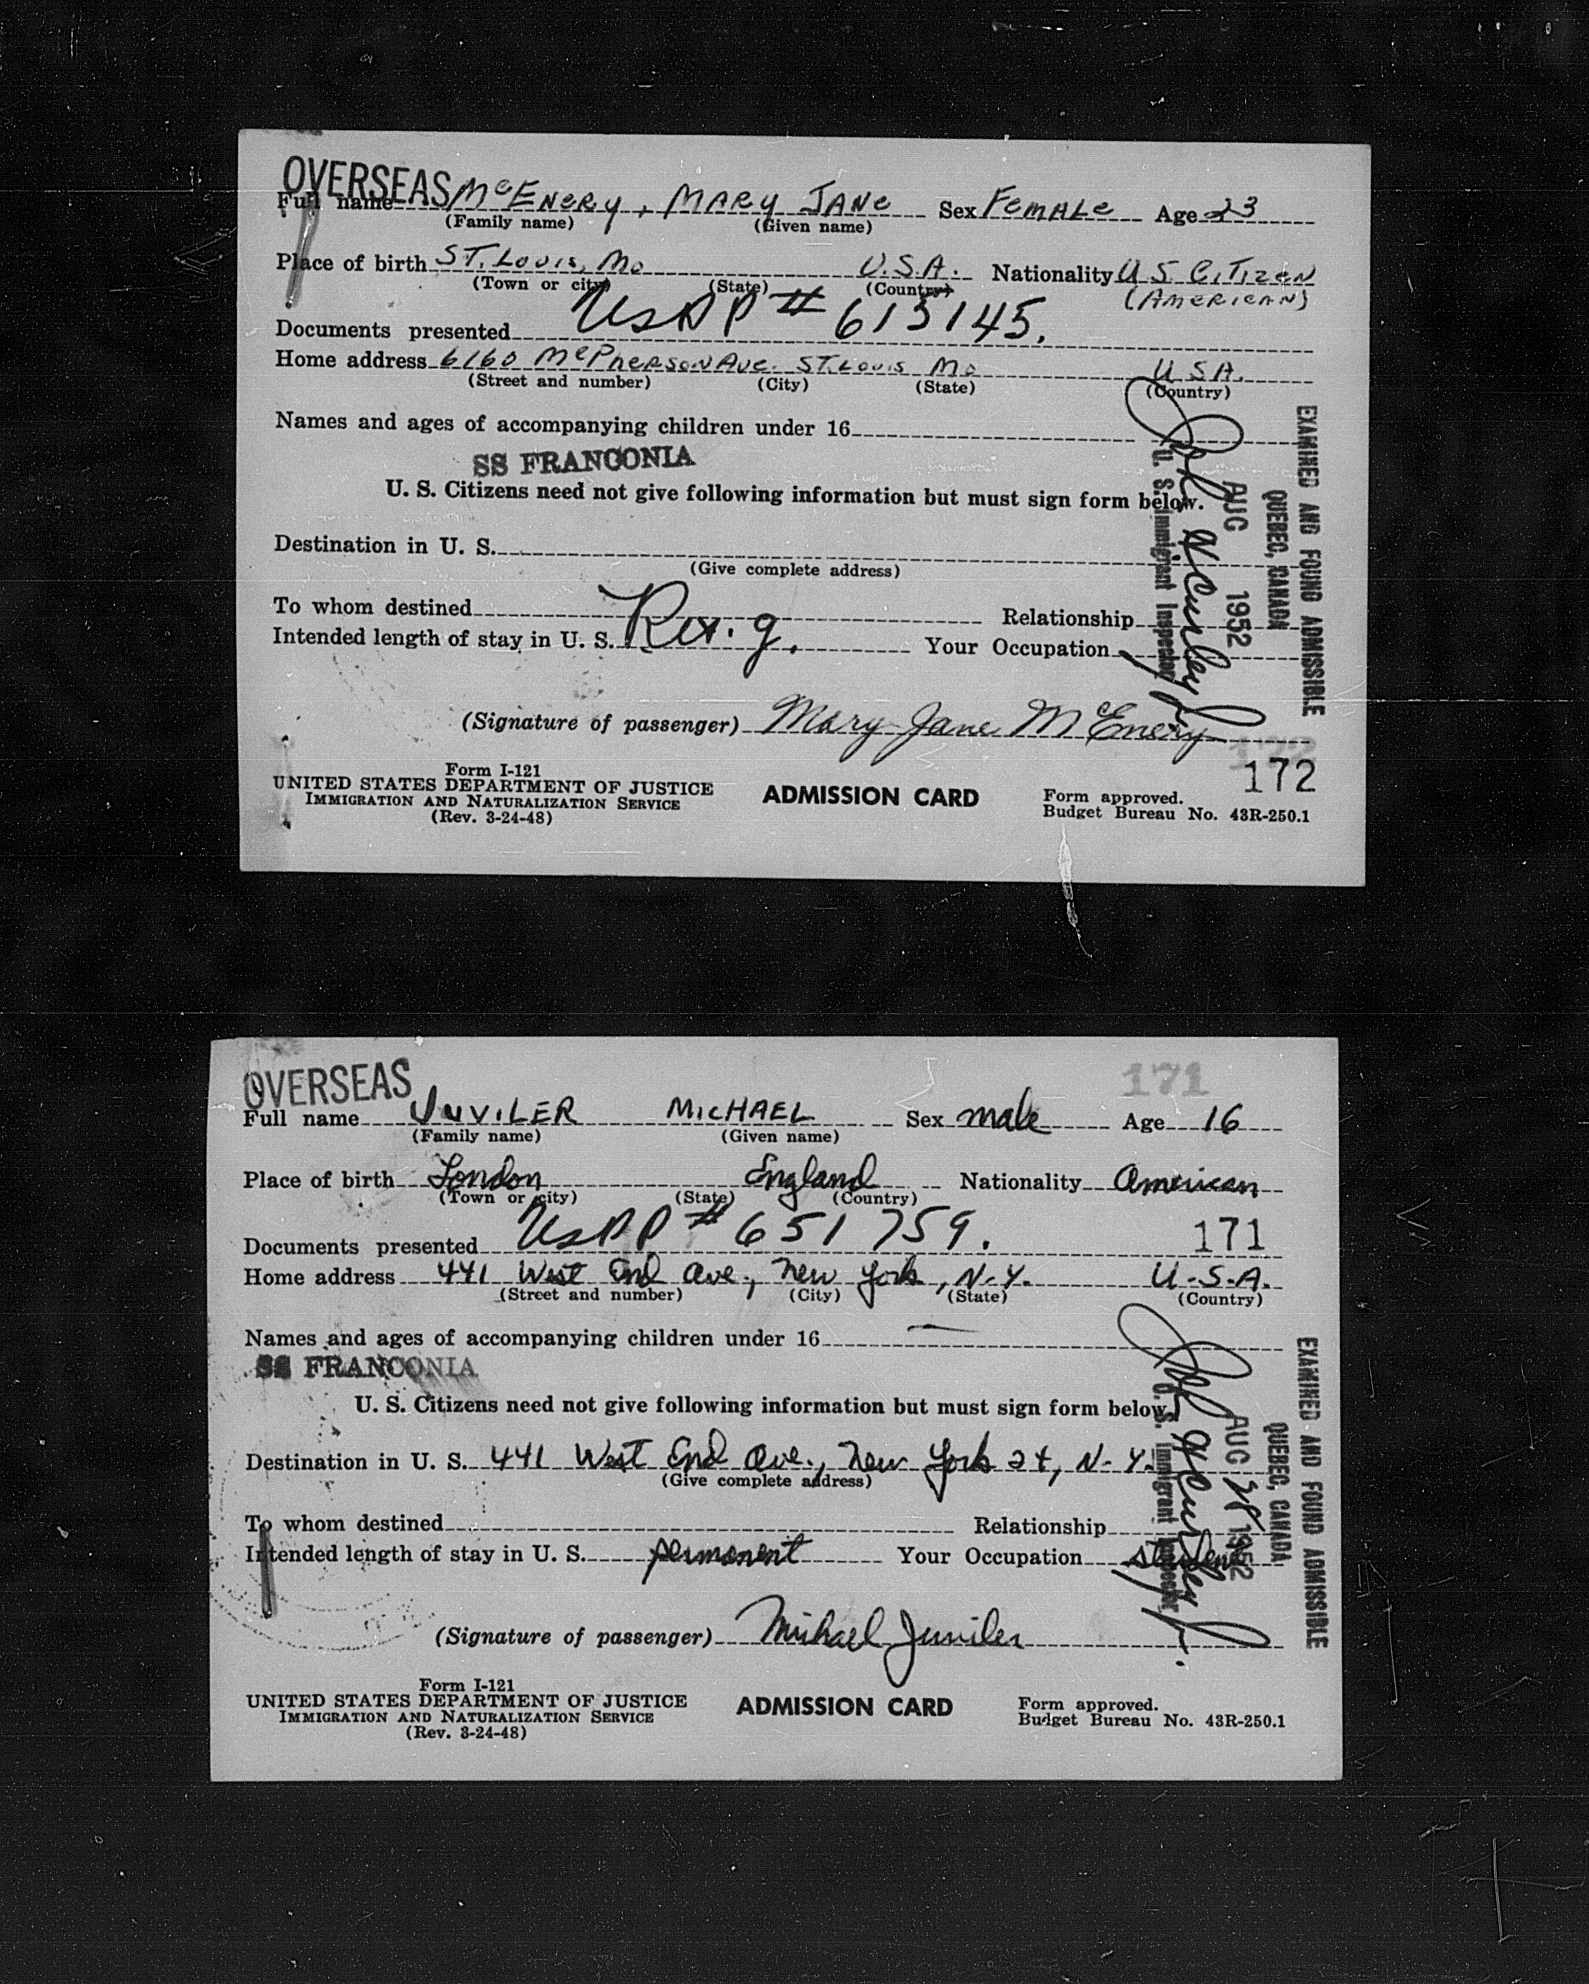 OVERSEAS
Full name McENERY, MARY JANE Sex FEMALE Age 23
(Family name) (Given name)
Place of birth ST. LOUIS, MO U.S.A. Nationality U S CITIZEN
(Town or city) (State) (Country) (AMERICAN)
Documents presented USPP # 613145.
Home address 6160 McPHERSON AVE. ST. LOUIS MO U S A.
(Street and number) (City) (State) (Country)
Names and ages of accompanying children under 16
SS FRANCONIA
U. S. Citizens need not give following information but must sign form below.
Destination in U. S.
(Give complete address)
To whom destined Relationship
Intended length of stay in U. S. Your Occupation
(Signature of passenger) Mary Jane McEnery
172
172
Form I-121
UNITED STATES DEPARTMENT OF JUSTICE
IMMIGRATION AND NATURALIZATION SERVICE
(Rev. 3-24-48)
ADMISSION CARD
Form approved.
Budget Bureau No. 43R-250.1
EXAMINED AND FOUND ADMISSIBLE
QUEBEC, CANADA
AUG 1952
U. S. Immigrant Inspector
OVERSEAS
171
Full name JUVILER MICHAEL Sex male Age 16
(Family name) (Given name)
Place of birth London England Nationality American
(Town or city) (State) (Country)
Documents presented USPP # 651759. 171
Home address 441 West End Ave., New York, N.Y. U.S.A.
(Street and number) (City) (State) (Country)
Names and ages of accompanying children under 16 —
SS FRANCONIA
U. S. Citizens need not give following information but must sign form below.
Destination in U. S. 441 West End Ave., New York 24, N.Y.
(Give complete address)
To whom destined Relationship
Intended length of stay in U. S. permanent Your Occupation student
(Signature of passenger) Michael Juviler
Form I-121
UNITED STATES DEPARTMENT OF JUSTICE
IMMIGRATION AND NATURALIZATION SERVICE
(Rev. 3-24-48)
ADMISSION CARD
Form approved.
Budget Bureau No. 43R-250.1
EXAMINED AND FOUND ADMISSIBLE
QUEBEC, CANADA
AUG 28 1952
U. S. Immigrant Inspector